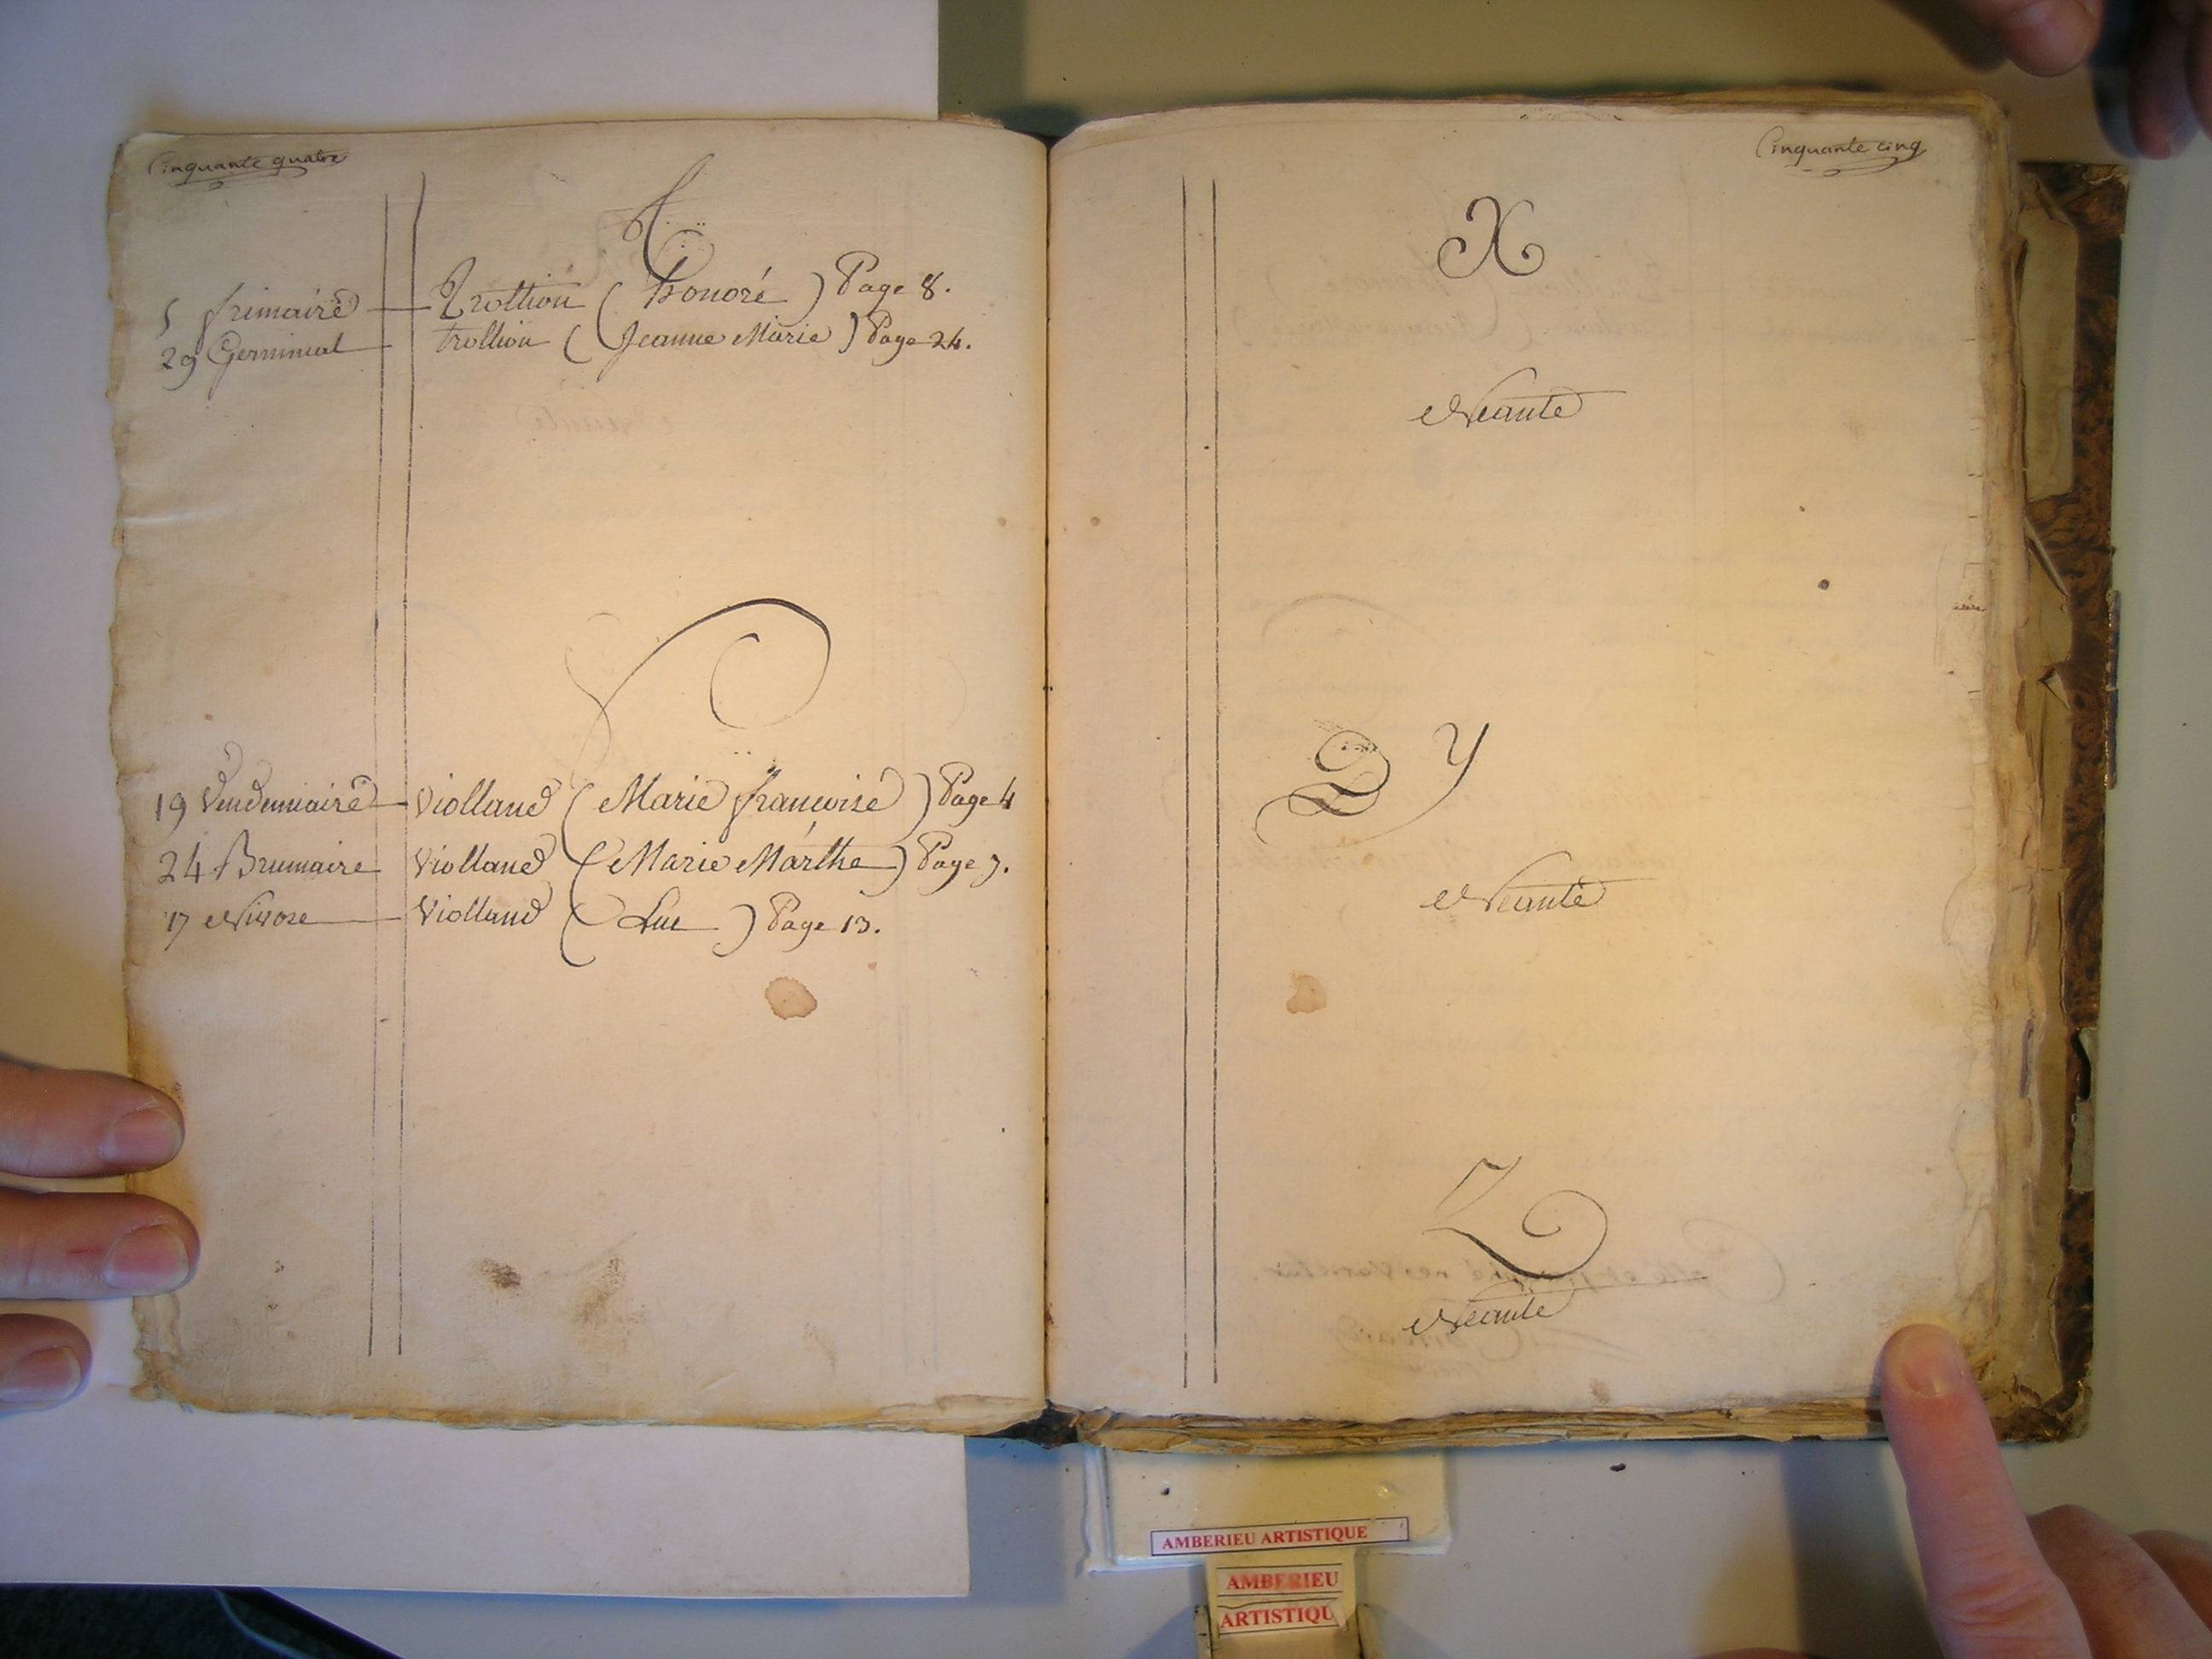 Cinquante quatre
T
5 frimaire Trollion ( honoré ) Page 8.
29 Germinal trollion ( Jeanne Marie ) Page 24.
V
19 Vendemiaire Violland ( Marie françoise ) Page 4
24 Brumaire Violland ( Marie Marthe ) Page 7.
17 Nivose Violland ( Luc ) Page 13.
Cinquante cinq
X
Neante
Y
Neante
Z
Neante
AMBERIEU ARTISTIQUE
AMBERIEU
ARTISTIQU